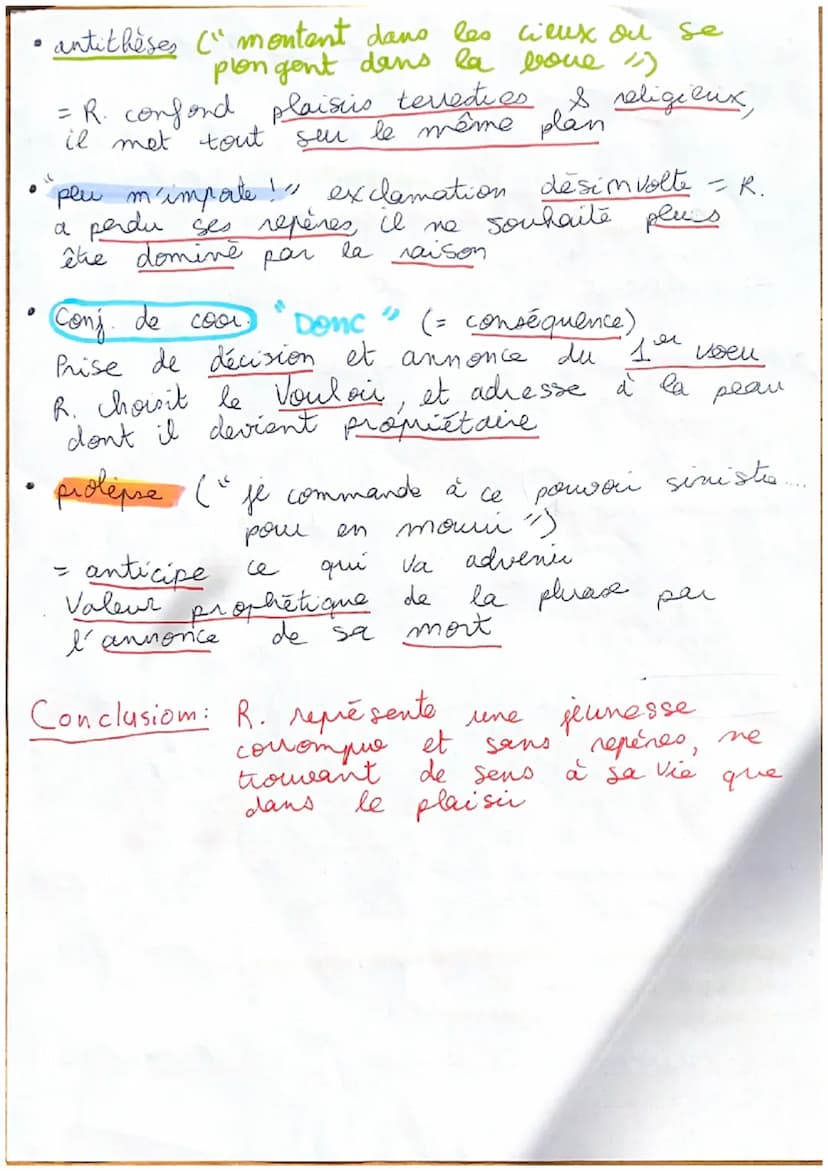 • antithèses (" montent dans les cieux ou se
plongent dans la boue ")
= R. confond plaisirs terrestres & religieux,
il met tout sur le même plan
• "peu m'importe !" exclamation désinvolte = R.
a perdu ses repères, il ne souhaite plus
être dominé par la raison
• Conj. de coor. "Donc" (= conséquence)
Prise de décision et annonce du 1er voeu
R. choisit le Vouloir, et adresse à la peau
dont il devient propriétaire
• prolepse (" je commande à ce pouvoir sinistre...
pour en mourir ")
= anticipe ce qui va advenir
Valeur prophétique de la phrase par
l'annonce de sa mort
Conclusion: R. représente une jeunesse
corrompue et sans repères, ne
trouvant de sens à sa vie que
dans le plaisir